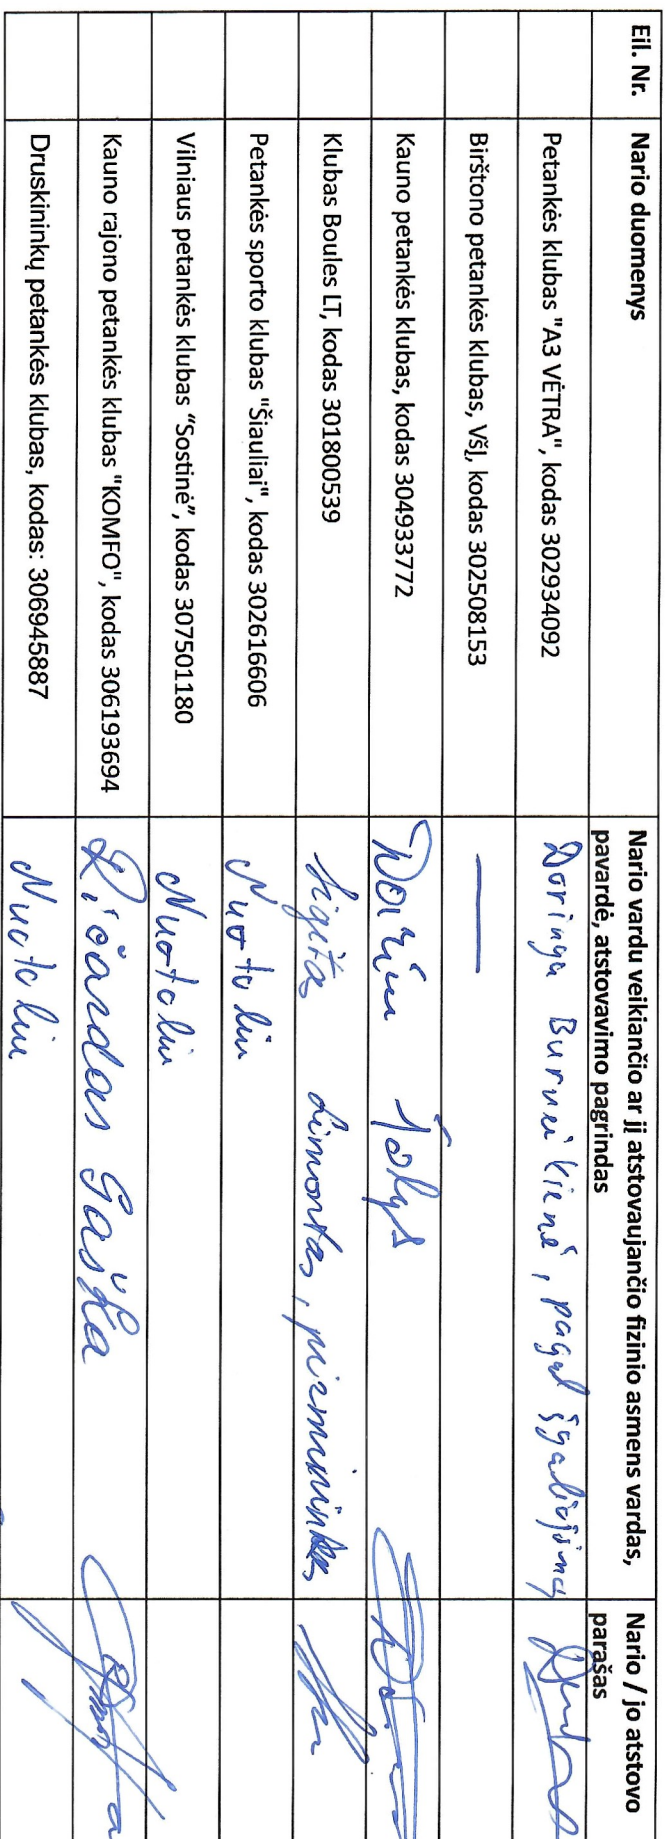 Eil. Nr. Nario duomenys Nario vardu veikiančio ar jį atstovaujančio fizinio asmens vardas, pavardė, atstovavimo pagrindas Nario / jo atstovo parašas
Petankės klubas "A3 VĖTRA", kodas 302934092 Doringa Burneikienė, pagal įgaliojimą
Birštono petankės klubas, VšĮ, kodas 302508153 —
Kauno petankės klubas, kodas 304933772
Klubas Boules LT, kodas 301800539 Sigitas Simontas, pirmininkas
Petankės sporto klubas "Šiauliai", kodas 302616606 Nuotoliu
Vilniaus petankės klubas “Sostinė”, kodas 307501180 Nuotoliu
Kauno rajono petankės klubas "KOMFO", kodas 306193694 Ričardas Gaška
Druskininkų petankės klubas, kodas: 306945887 Nuotoliu